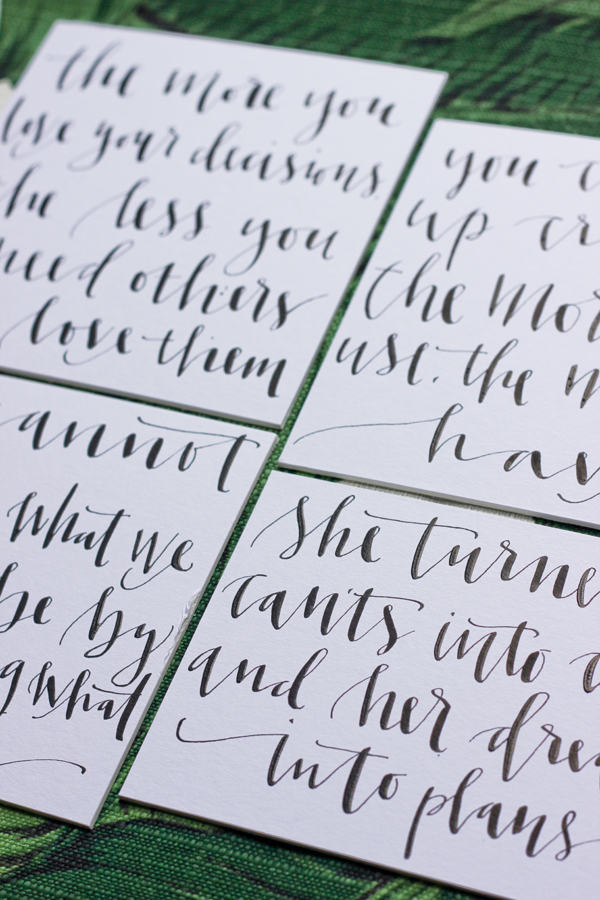 the more you
love your decisions
the less you
need others
love them
you c
up cr
the mor
use. the m
hav
annot
what we
be by
g what
She turne
can'ts into c
and her drea
into plans